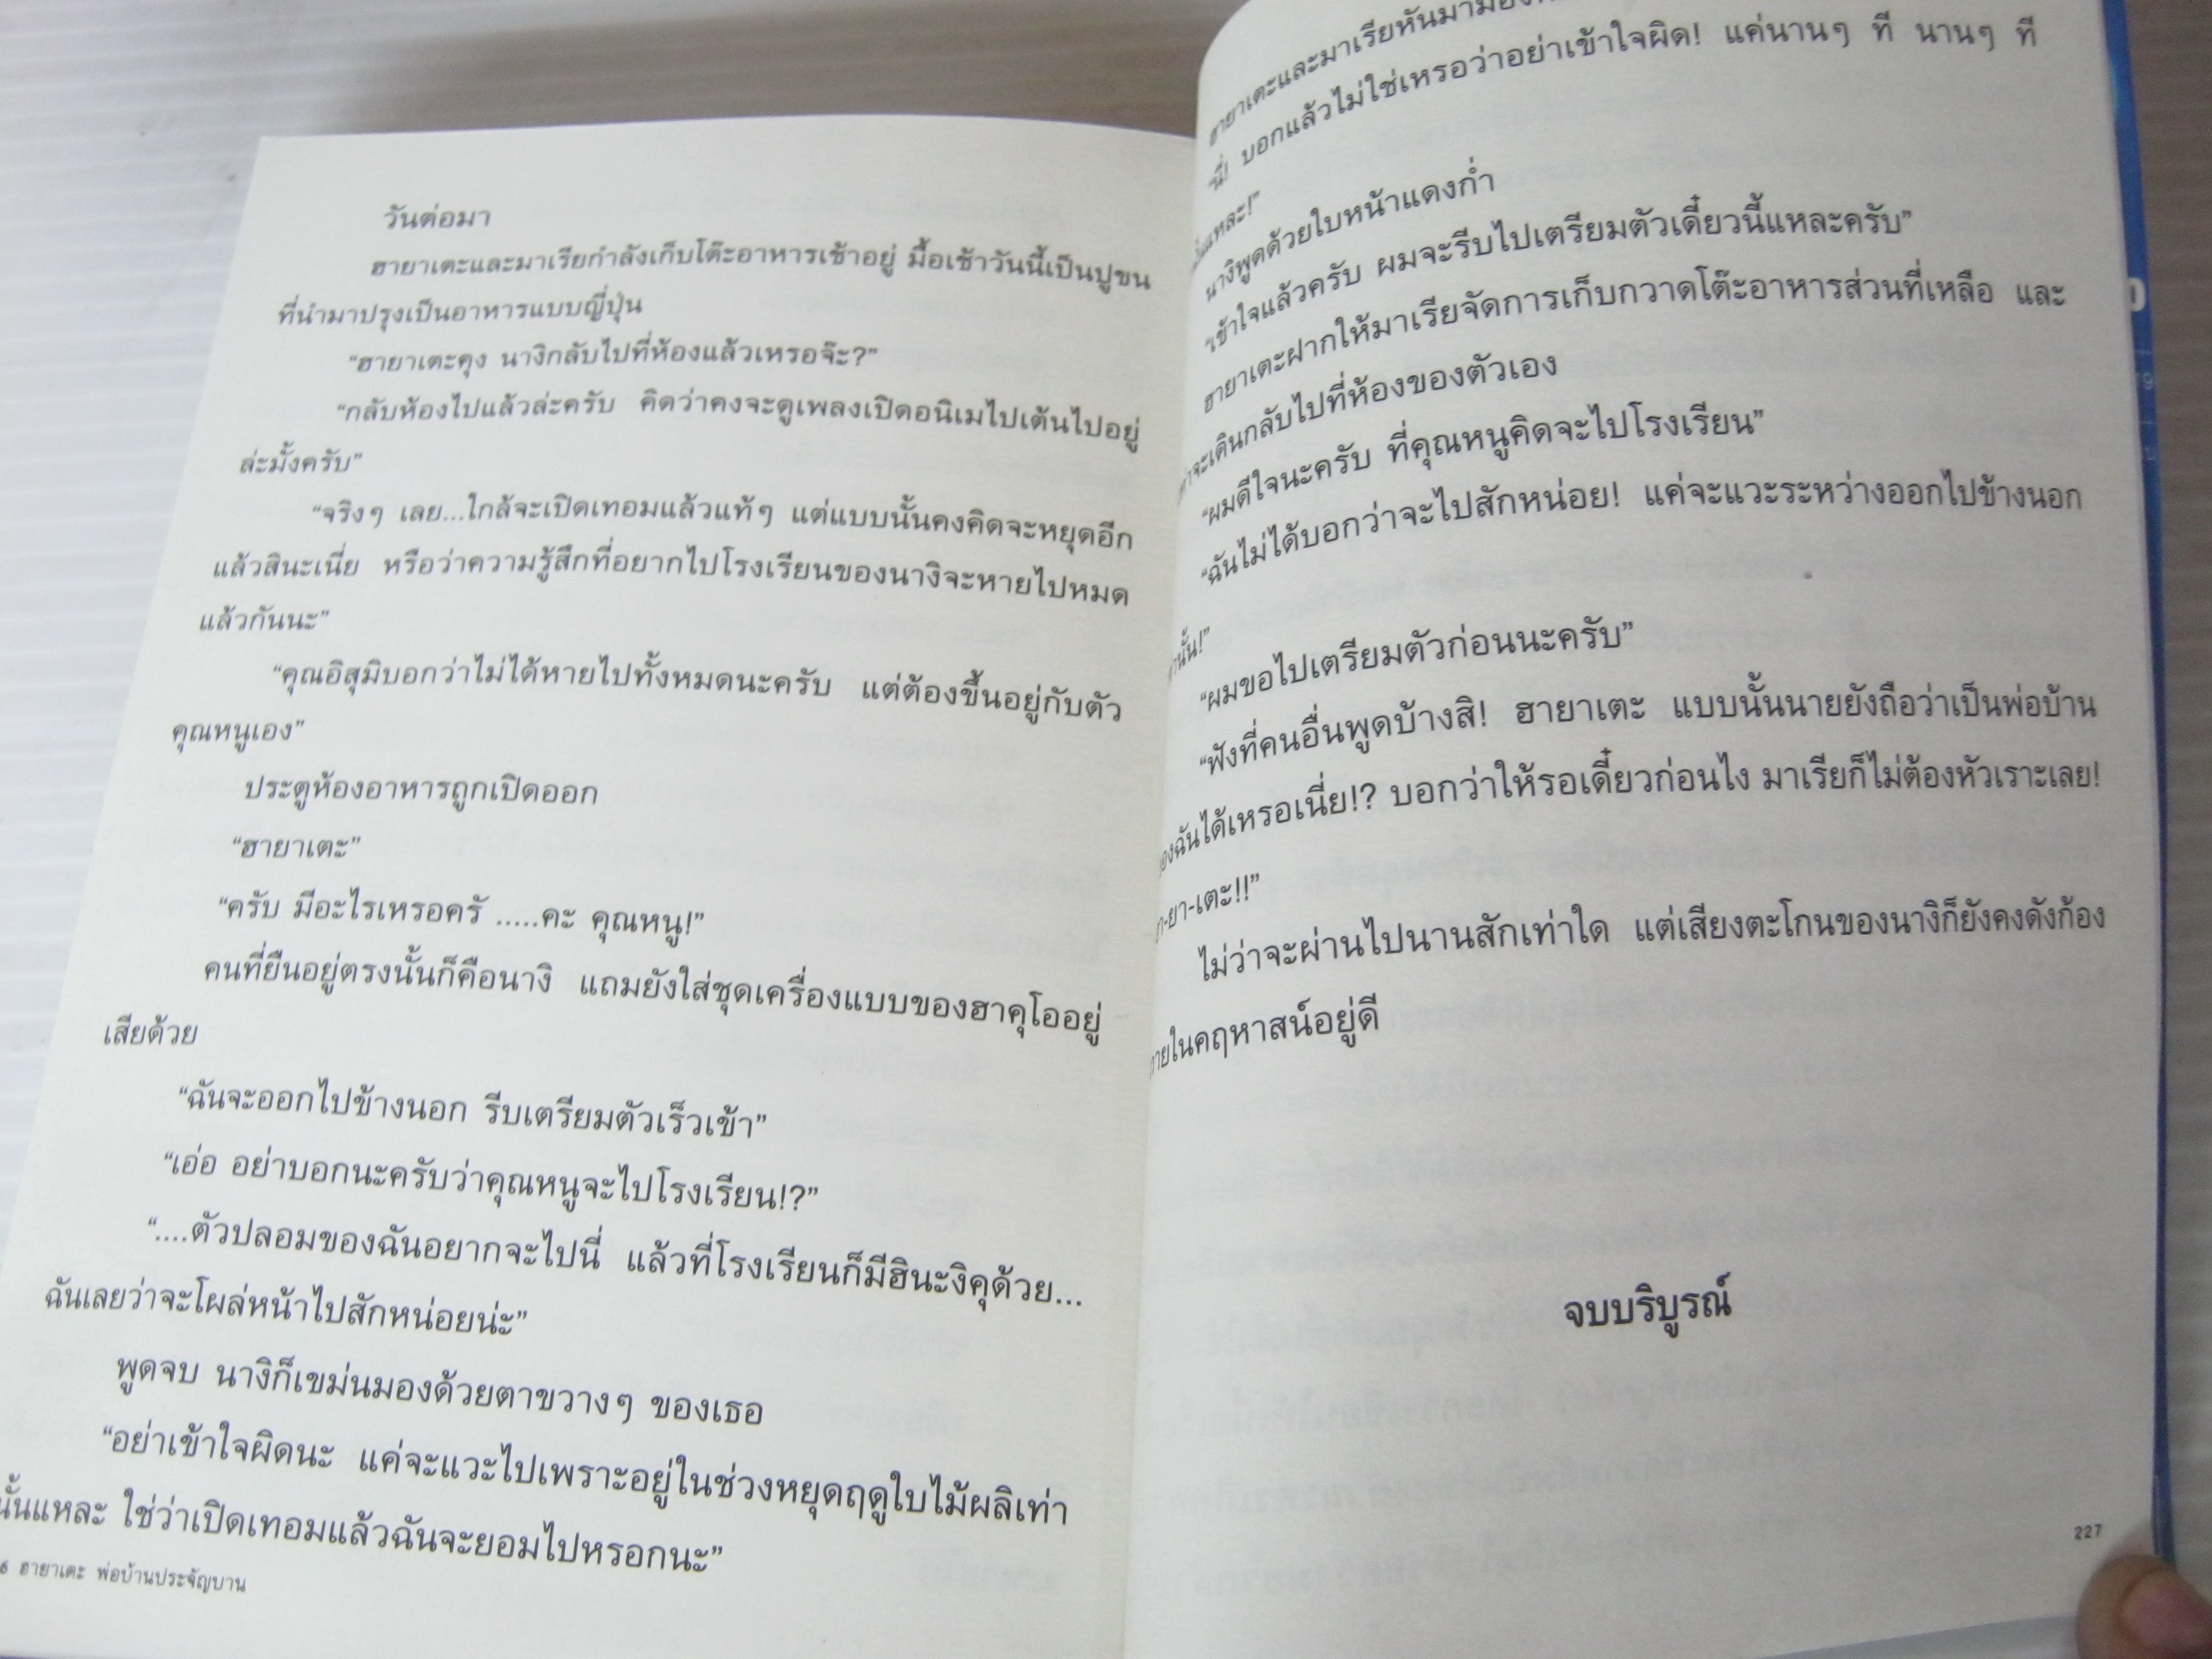 วันต่อมา
ฮายาเตะและมาเรียกำลังเก็บโต๊ะอาหารเช้าอยู่ มื้อเช้าวันนี้เป็นปูขน
ที่นำมาปรุงเป็นอาหารแบบญี่ปุ่น
“ฮายาเตะคุง นางิกลับไปที่ห้องแล้วเหรอจ๊ะ?”
“กลับห้องไปแล้วล่ะครับ คิดว่าคงจะดูเพลงเปิดอนิเมไปเต้นไปอยู่
ล่ะมั้งครับ”
“จริงๆ เลย...ใกล้จะเปิดเทอมแล้วแท้ๆ แต่แบบนั้นคงคิดจะหยุดอีก
แล้วสินะเนี่ย หรือว่าความรู้สึกที่อยากไปโรงเรียนของนางิจะหายไปหมด
แล้วกันนะ”
“คุณอิสุมิบอกว่าไม่ได้หายไปทั้งหมดนะครับ แต่ต้องขึ้นอยู่กับตัว
คุณหนูเอง”
ประตูห้องอาหารถูกเปิดออก
“ฮายาเตะ”
“ครับ มีอะไรเหรอครั .....คะ คุณหนู!”
คนที่ยืนอยู่ตรงนั้นก็คือนางิ แถมยังใส่ชุดเครื่องแบบของฮาคุโออยู่
เสียด้วย
“ฉันจะออกไปข้างนอก รีบเตรียมตัวเร็วเข้า”
“เอ่อ อย่าบอกนะครับว่าคุณหนูจะไปโรงเรียน!?”
“....ตัวปลอมของฉันอยากจะไปนี่ แล้วที่โรงเรียนก็มีฮินะงิคุด้วย...
ฉันเลยว่าจะโผล่หน้าไปสักหน่อยน่ะ”
พูดจบ นางิก็เขม่นมองด้วยตาขวางๆ ของเธอ
“อย่าเข้าใจผิดนะ แค่จะแวะไปเพราะอยู่ในช่วงหยุดฤดูใบไม้ผลิเท่า
นั้นแหละ ใช่ว่าเปิดเทอมแล้วฉันจะยอมไปหรอกนะ”
6 ฮายาเตะ พ่อบ้านประจัญบาน
ฮายาเตะและมาเรียหันมา
“นี่! บอกแล้วไม่ใช่เหรอว่าอย่าเข้าใจผิด! แค่นานๆ ที นานๆ ที
แหละ!”
นางิพูดด้วยใบหน้าแดงก่ำ
“เข้าใจแล้วครับ ผมจะรีบไปเตรียมตัวเดี๋ยวนี้แหละครับ”
ฮายาเตะฝากให้มาเรียจัดการเก็บกวาดโต๊ะอาหารส่วนที่เหลือ และ
จะเดินกลับไปที่ห้องของตัวเอง
“ผมดีใจนะครับ ที่คุณหนูคิดจะไปโรงเรียน”
“ฉันไม่ได้บอกว่าจะไปสักหน่อย! แค่จะแวะระหว่างออกไปข้างนอก
นั้น!”
“ผมขอไปเตรียมตัวก่อนนะครับ”
“ฟังที่คนอื่นพูดบ้างสิ! ฮายาเตะ แบบนั้นนายยังถือว่าเป็นพ่อบ้าน
ของฉันได้เหรอเนี่ย!? บอกว่าให้รอเดี๋ยวก่อนไง มาเรียก็ไม่ต้องหัวเราะเลย!
-ยา-เตะ!!”
ไม่ว่าจะผ่านไปนานสักเท่าใด แต่เสียงตะโกนของนางิก็ยังคงดังก้อง
ภายในคฤหาสน์อยู่ดี
จบบริบูรณ์
227